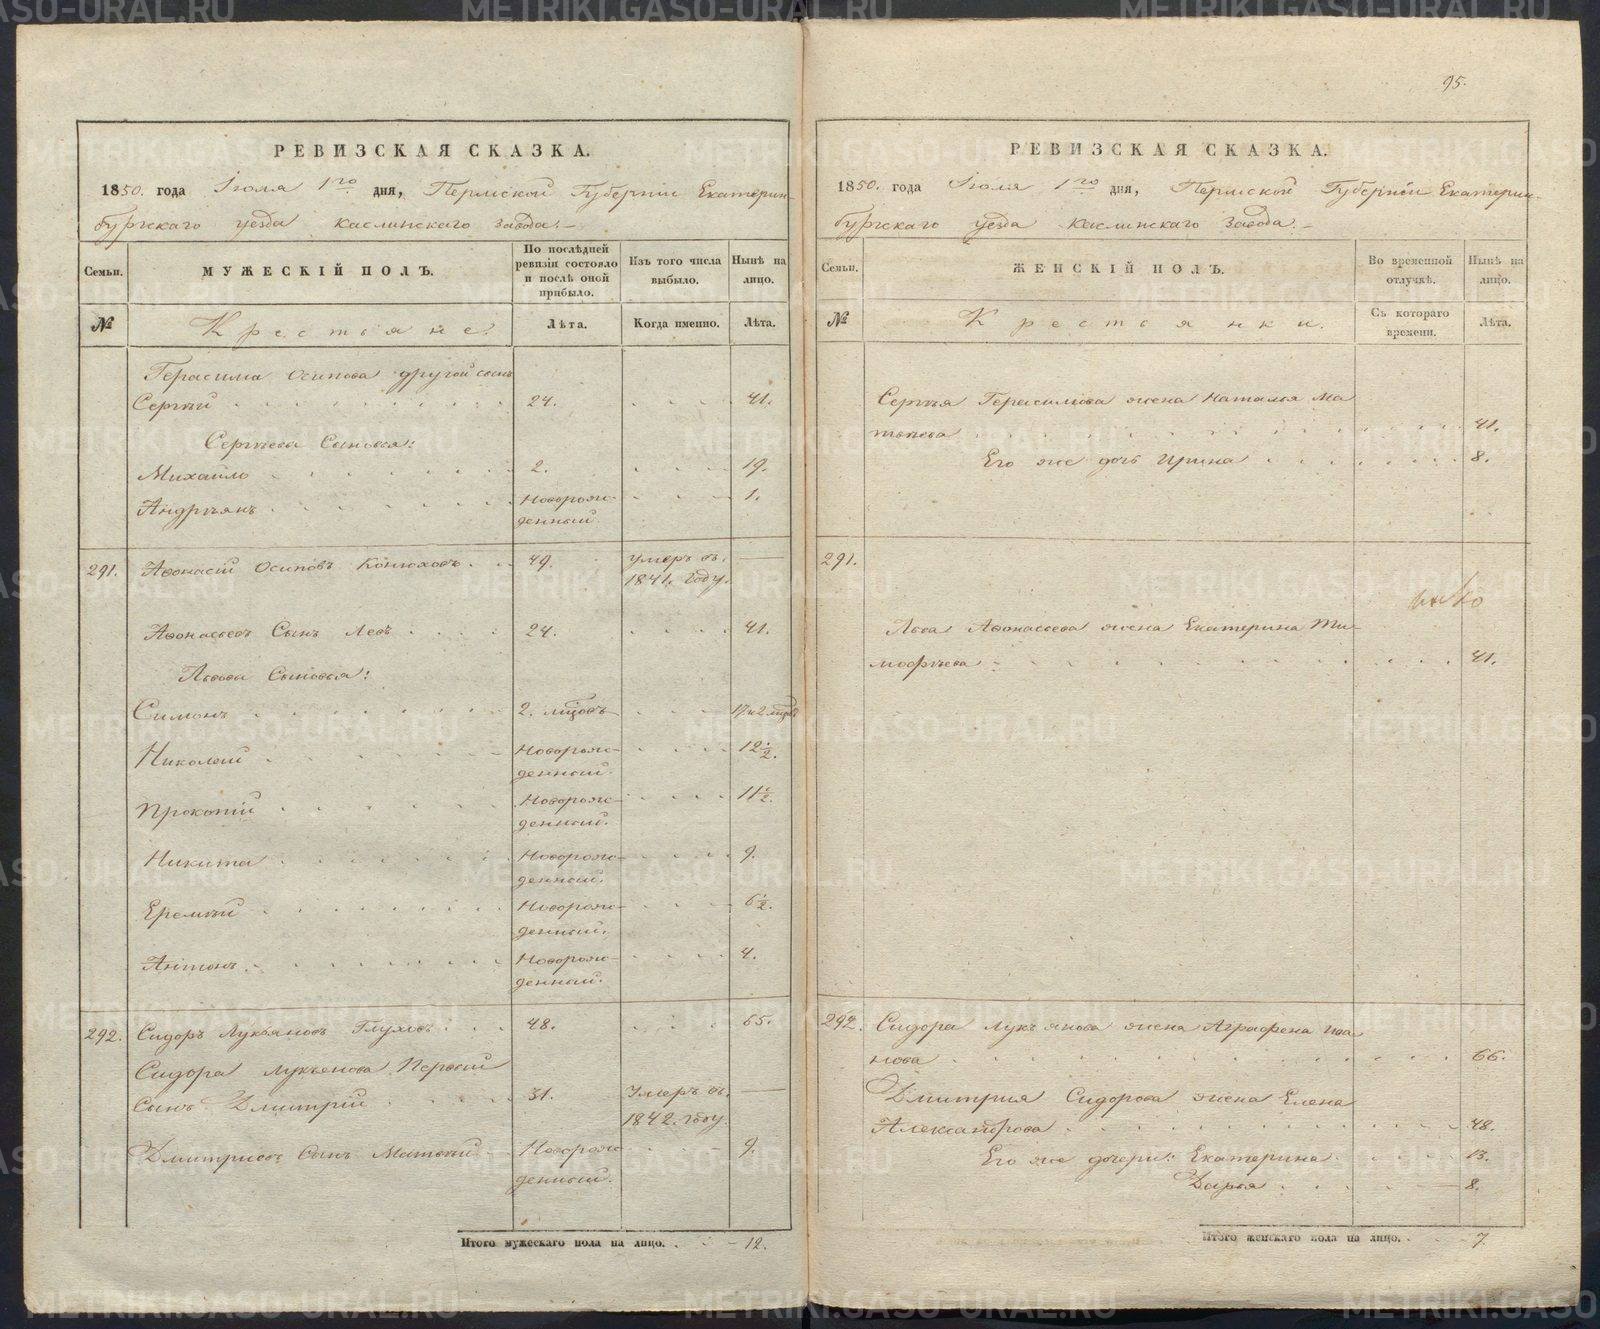 95.
РЕВИЗСКАЯ СКАЗКА.
1850. года Іюля 1го дня, Пермской Губерніи Екатерин-
бургскаго уезда Каслинскаго Завода.
Семьи.
МУЖЕСКІЙ ПОЛЪ.
По послѣдней ревизіи состояло и послѣ оной прибыло.
Изъ того числа выбыло.
Нынѣ на лицо.
№
Крестьяне:
Лѣта.
Когда именно.
Лѣта.
Герасима Осипова другой сынъ
Сергѣй 24. 41.
Сергѣева Сыновья:
Михайло 2. 19.
Андреянъ Новорож- 1.
денный.
291. Афонасій Осиповъ Конюховъ 49. умеръ въ
1841. году.
Афонасьевъ Сынъ Левъ 24. 41.
Львовы Сыновья:
Симонъ 2. мцовъ 17 и 2 мцовъ
Николай Новорож- 12½.
денный.
Прокопій Новорож- 11½.
денный.
Никита Новорож- 9.
денный.
Еремѣй Новорож- 6½.
денный.
Антонъ Новорож- 4.
денный.
292. Сидоръ Лукьяновъ Глуховъ 48. 65.
Сидора Лукьянова Первый
Сынъ Дмитрій 31. Умеръ въ
1842. году.
Дмитріевъ Сынъ Матвѣй Новорож- 9.
денный.
Итого мужескаго пола на лицо. 12.
РЕВИЗСКАЯ СКАЗКА.
1850. года Іюля 1го дня, Пермской Губерніи Екатерин-
бургскаго уезда Каслинскаго Завода.
Семьи.
ЖЕНСКІЙ ПОЛЪ.
Во временной отлучкѣ.
Нынѣ на лицо.
№
Крестьянки.
Съ котораго времени.
Лѣта.
Сергѣя Герасимова жена Наталья Ма-
твѣева 41.
Его же дочь Ирина 8.
291.
Льва Афонасьева жена Екатерина Ти-
мофѣева 41.
292. Сидора Лукьянова жена Аграфена Ива
нова 66.
Дмитрія Сидорова жена Елена
Александрова 48.
Его же дочери: Екатерина 13.
Дарья 8.
Итого женскаго пола на лицо. 7.
METRIKI.GASO-URAL.RU